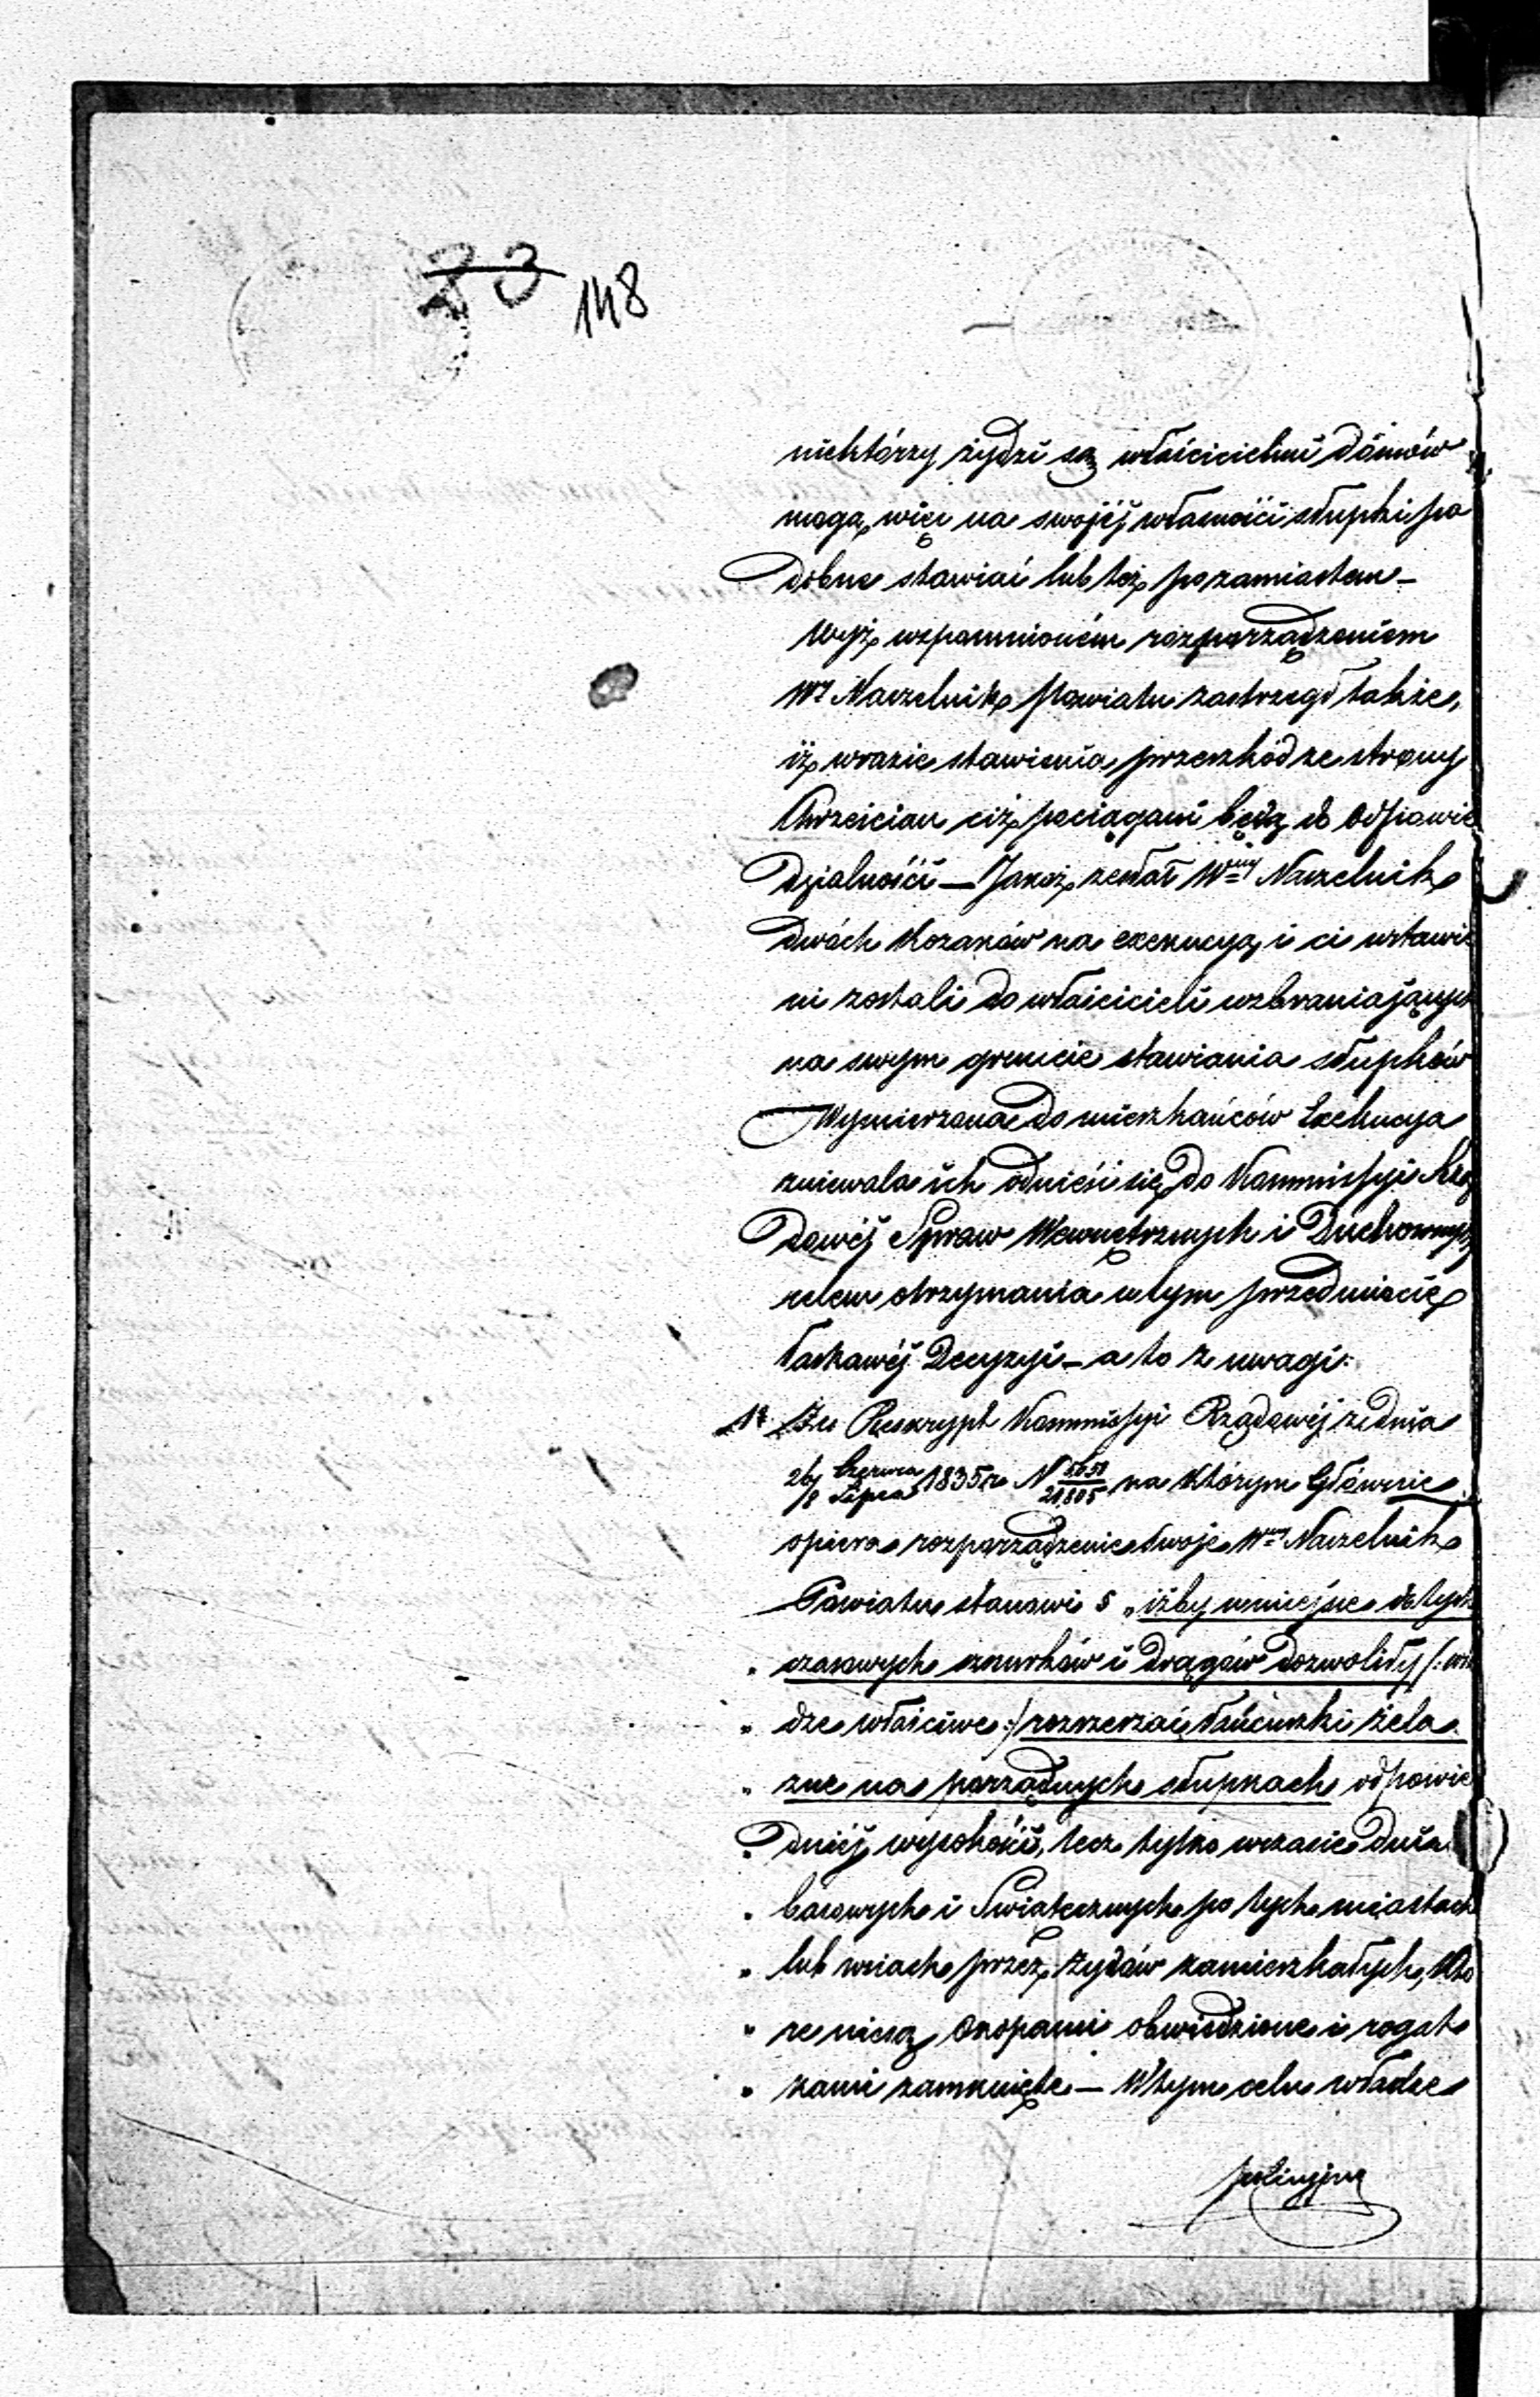 83 148
niektórzy żydzi są właścicielmi domów
mogą więc na swojéj własności słupki po
dobne stawiać lub też po zamiastem —
Wyż wspomnioném rozporządzeniem
WJ Naczelnik Powiatu zastrzegł także,
iż wrazie stawienia przeszkód ze strony
Chrześcian ciż pociągani będą do odpowie
dzialności — Jakoż zesłał Wny Naczelnik
dwóch Kozaków na exekucyą i ci wstawie
ni zostali do właścicieli wzbraniających
na swym gruncie stawiania słupków
Wymierzona do mieszkańców Exekucya
zniewala ich odnieść się do Kommissyi Rzą
dowéj Spraw Wewnętrznych i Duchownych
celem otrzymania w tym przedmiocie
łaskawéj Decyzyi — a to z uwagi:
1. Że Reskrypt Kommissyi Rządowéj z dnia
26/8 Czerwca/Lipca 1835 r. N na którym Głównie
opiera rozporządzenie swoje Wny Naczelnik
Powiatu stanowi „iżby w miejsce dotych
„ czasowych sznurków i drągów dozwoliły /: wła
„ dze właściwe :/ rozwieszać łańcuszki żela
„ zne na porządnych słupkach odpowie
„ dniéj wysokości, lecz tylko w czasie dni sza
„ basowych i Świątecznych po tych miastach
„ lub wsiach przez żydów zamieszkałych, któ
„ re nie są okopami obwiedzione i rogat
„ kami zamknięte — W tym celu władze
policyjne